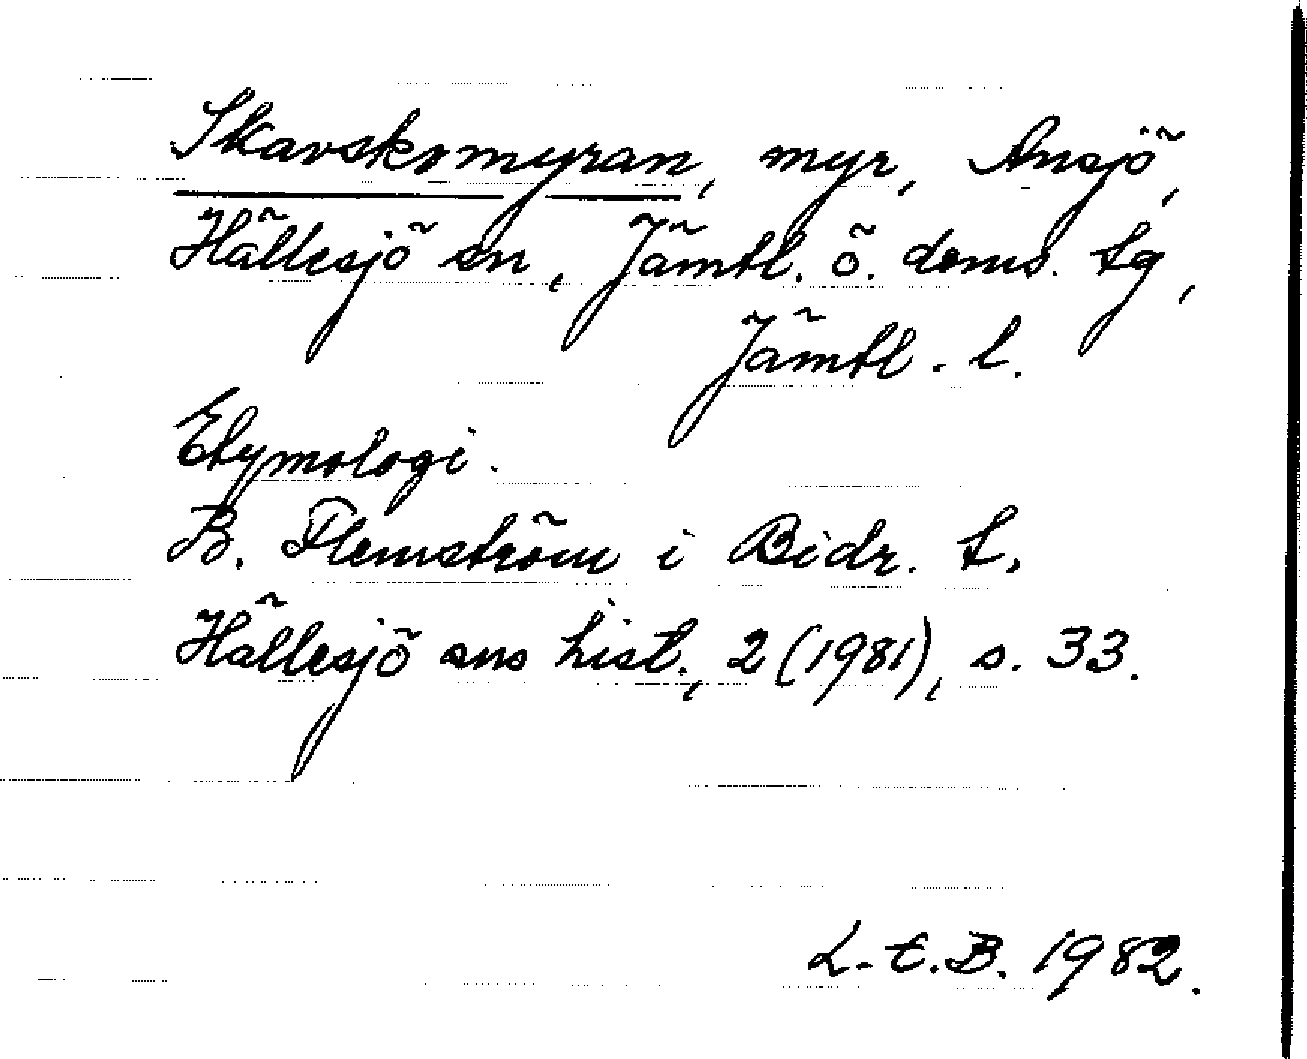 Skavskomyran, myr, Ansjö,
Hällesjö sn, Jämtl. ö. doms. tg,
Jämtl. l.
Etymologi.
B. Flemström i Bidr. t.
Hällesjö sns hist., 2 (1981), s. 33.
L.E.B. 1982.